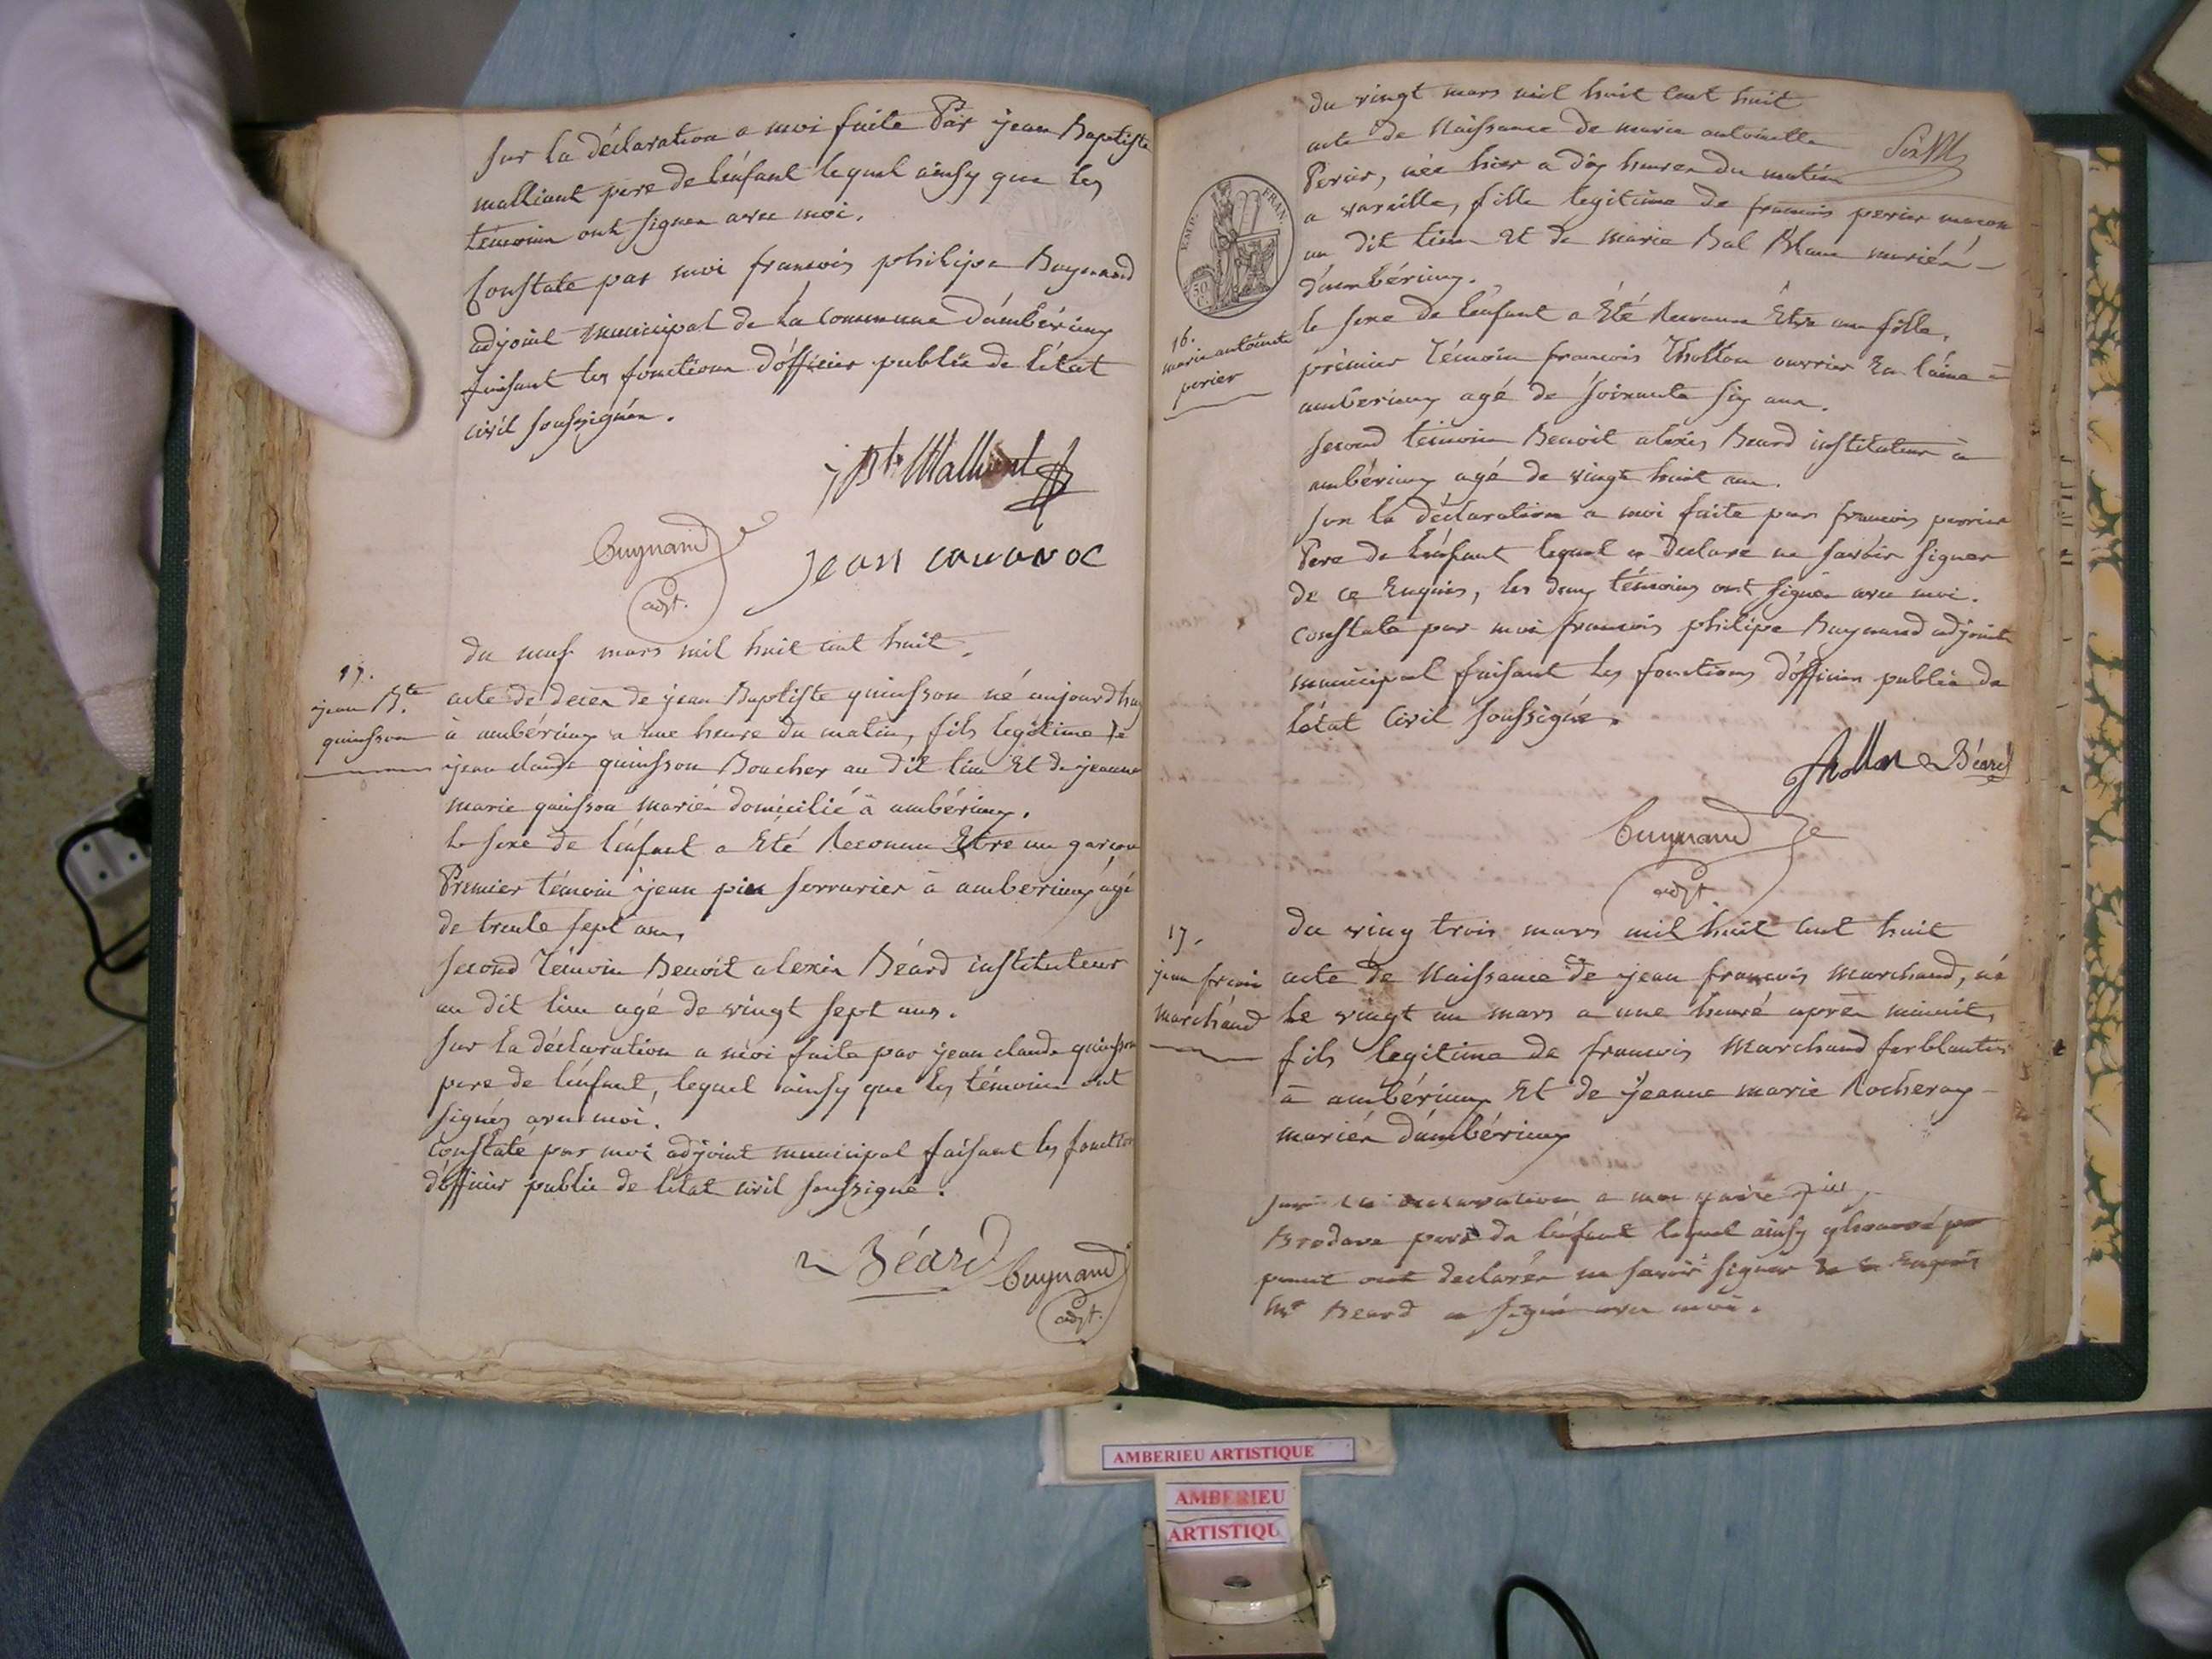 sur la déclaration a moi faite Par jean Baptiste
malliant pere de l'énfant lequel ainsy que les
témoins ont signer avec moi.
Constate par moi francois philipe Buynand
adjoint municipal de la Commune d'ambérieux
faisant les fonctions d'officier public de l'état
civil soussignée.
Buynand
adjt.
du neuf mars mil huit cent huit.
jean B.te
quinsson
acte de decès de jean Baptiste quinsson né aujourdhuy
à ambérieux a une heure du matin, fils legitime de
jean claude quinsson Boucher au dit lieu Et de jeanne
marie quinsson mariés domicilié à ambérieux.
le sexe de l'énfant a Eté Reconnu Etre un garcon
Premier témoin jean pin serrurier à amberieux agé
de trente sept ans,
second témoin Benoit alexis Béard instituteur
au dit lieu agé de vingt sept ans.
sur la déclaration a moi faite par jean claude quinsson
pere de l'énfant, lequel ainsy que les témoins ont
signés avec moi.
Constaté par moi adjoint municipal faisant les fonction
d'officier public de l'état civil soussigné.
Béard Buynand
adjt.
du vingt mars mil huit cent huit
acte de Naissance de marie antoinette
Perier, née hier a dix heures du matin
a vareille, fille legitime de francois perier macon
au dit lieu Et de marie Bal Blanc mariés
d'ambérieux.
EMP. FRAN.
16.
marie antoinette
perier
le sexe de l'énfant a Eté Reconnu Etre une fille.
prémier témoin francois Thollon ouvrier En laine à
amberieux agé de soixante six ans.
second témoin Benoit alexis Beard instituteur à
ambérieux agé de vingt huit ans.
sur la déclaration a moi faite par francois perrier
Pere de l'énfant lequel a Declaré ne savoir signer
de ce Enquis, les deux témoins ont signés avec moi.
Constaté par moi francois philipe Buynand adjoint
municipal faisant les fonctions d'officier public de
l'état Civil soussigné.
Thollon Béard
Buynand
adjt
17.
jean francois
marchand
du ving trois mars mil huit cent huit
acte de Naissance de jean francois Marchand, né
le vingt un mars a une heure après minuit,
fils legitime de francois Marchand ferblantier
à ambérieux Et de jeanne marie Rocheray
mariés d'ambérieux
sur la déclaration a moi faite
Brodave pere de l'énfant lequel ainsy
ont declarés ne savoir signer de ce Enquis
Mr Beard a signé avec moi.
AMBERIEU ARTISTIQUE
AMBERIEU
ARTISTIQU